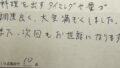 料理を出すタイミングや量が
調度良く、大変満足しました。
また、次回もお世話になります
10